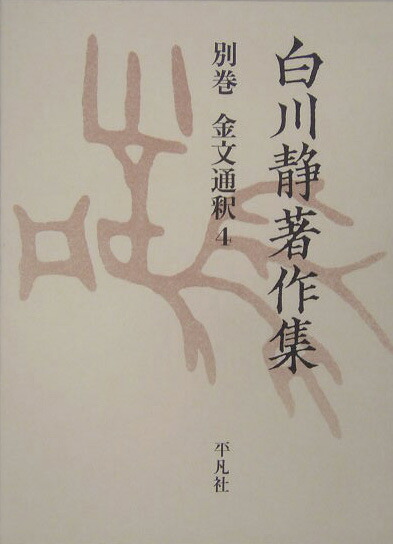 白川静著作集
別巻 金文通釈4
平凡社